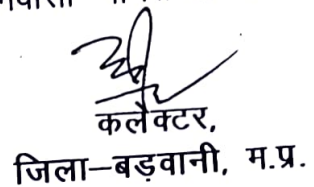 कलेक्टर,
जिला–बड़वानी, म.प्र.